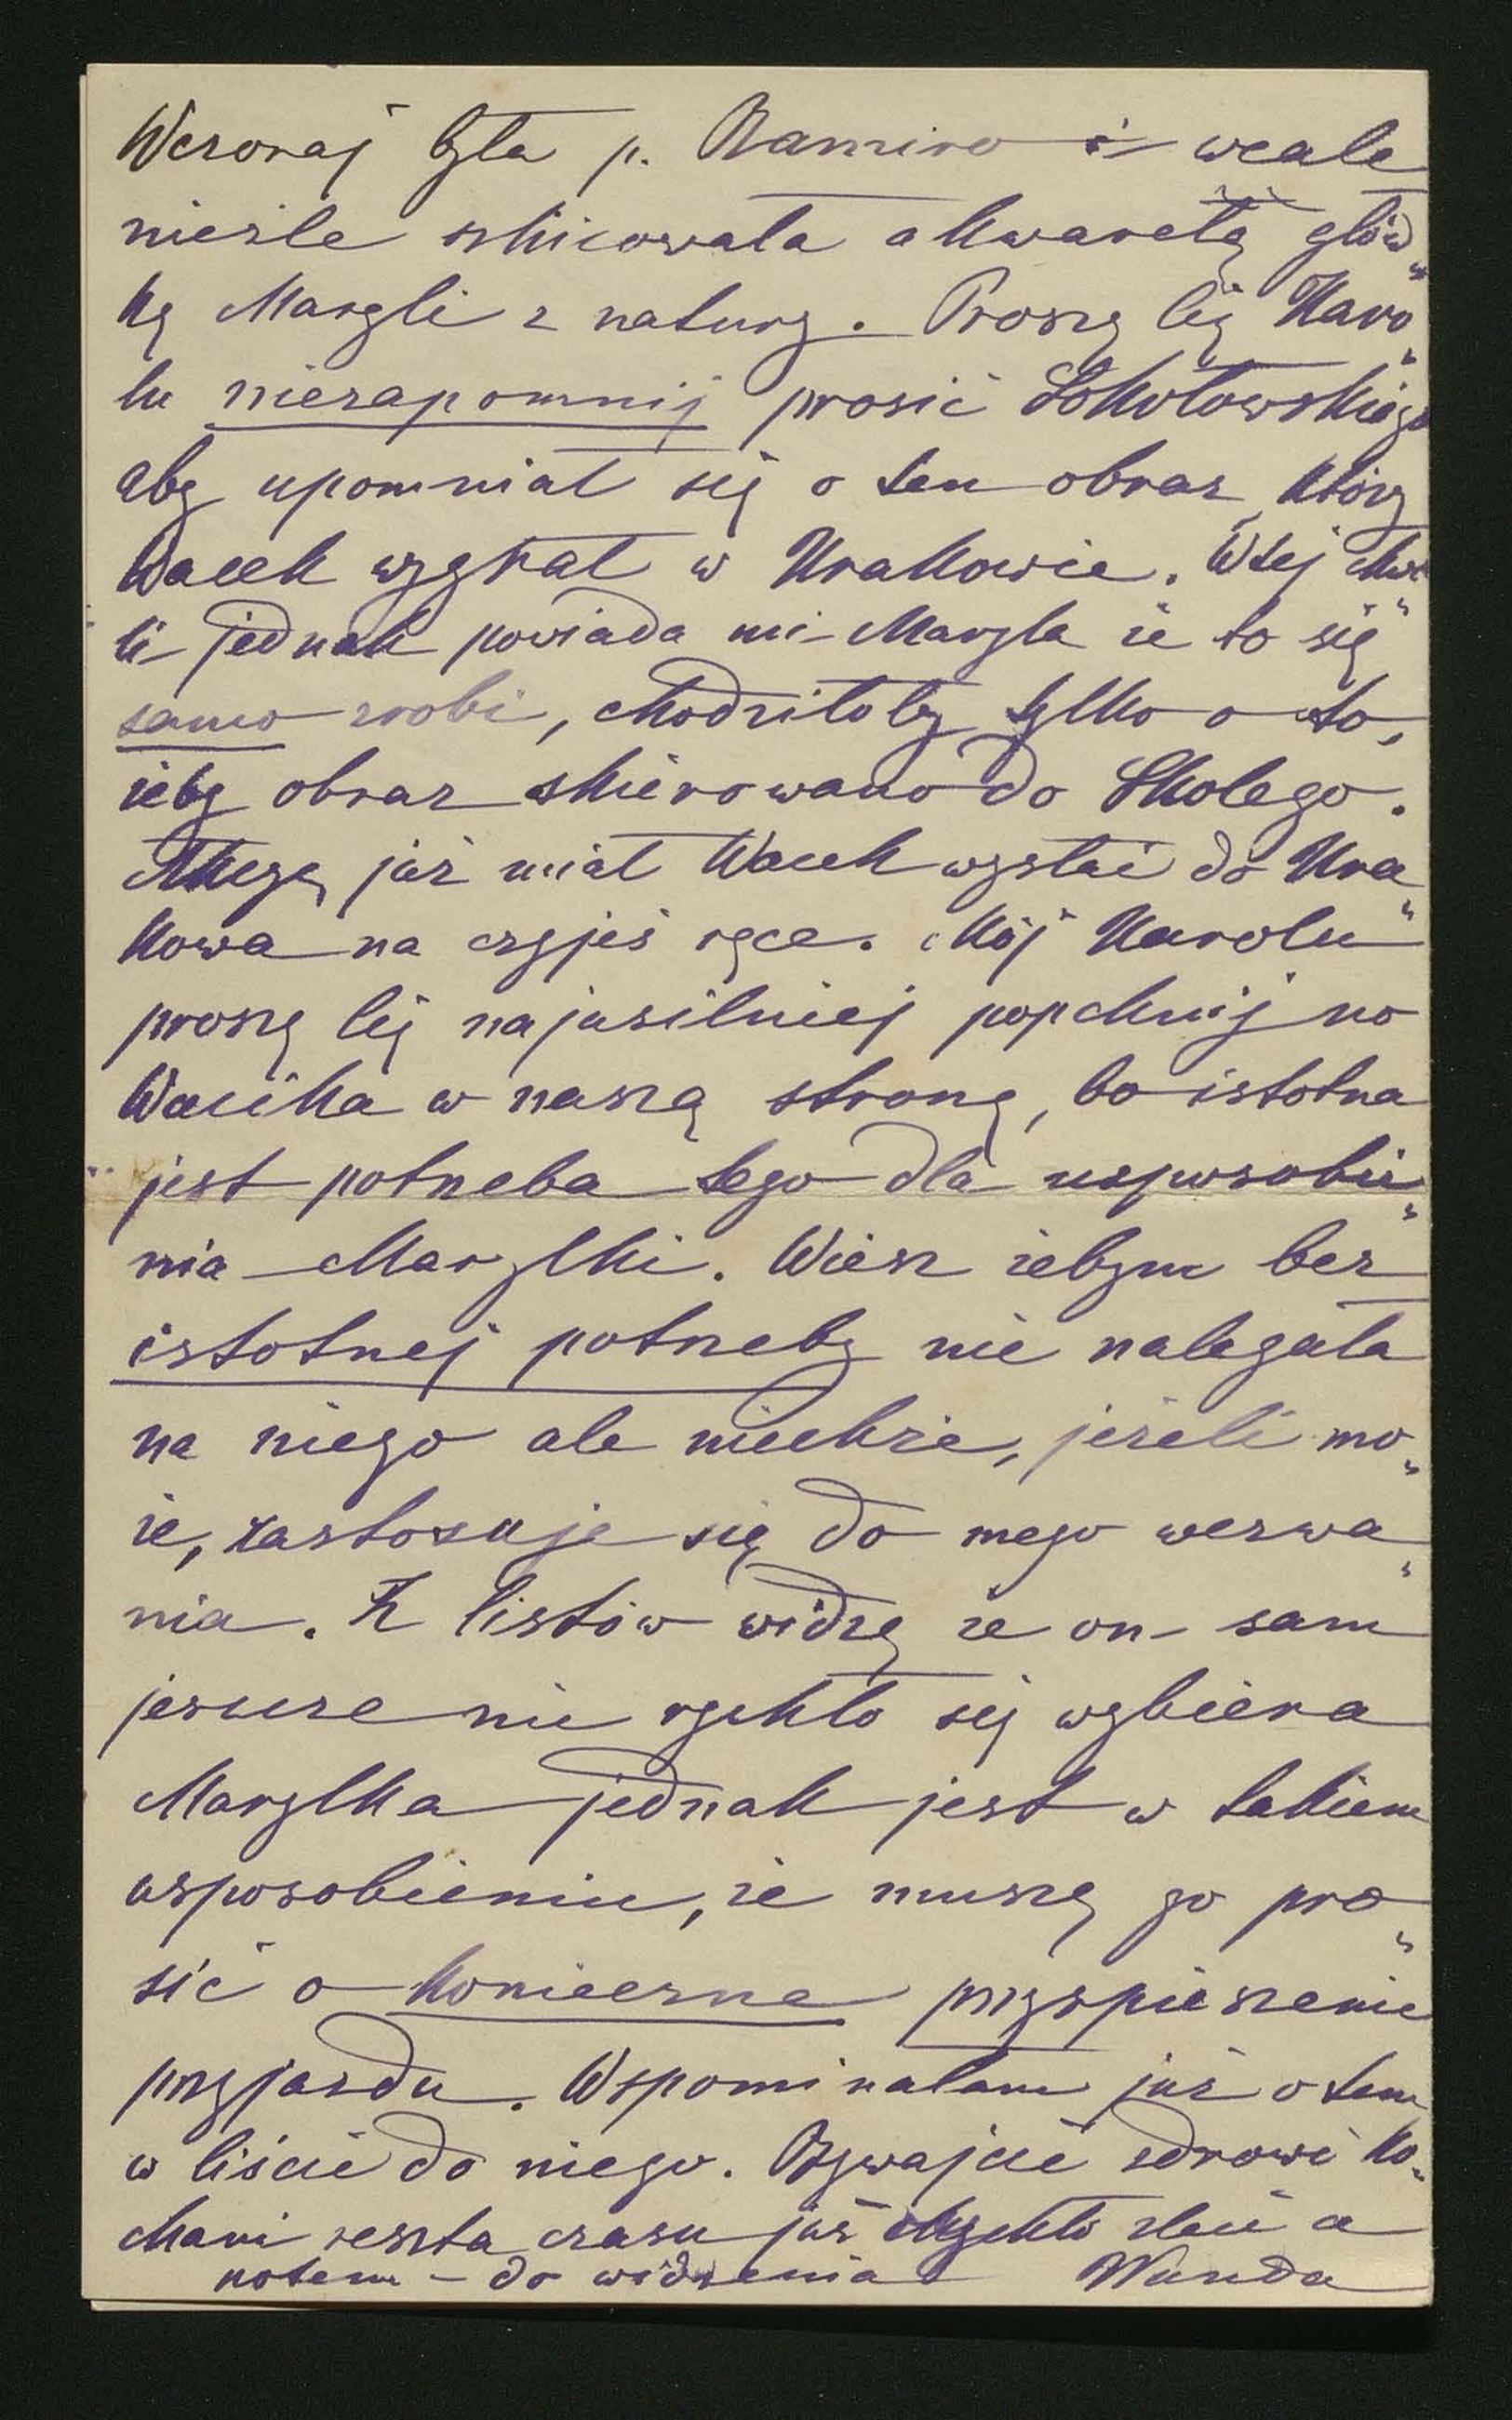 Wczoraj była p. Ramiro i wcale
nieźle szkicowała akwarelą głów„
kę Maryli z natury. Proszę Cię Karo„
lu niezapomnij prosić Sokołowskiego
aby upomniał się o ten obraz który
Wacek wygrał w Krakowie. W tej chwi„
li jednak powiada mi Maryla że to się
samo zrobi, chodziłoby tylko o to,
żeby obraz skierowano do Skolego.
już miał Wacek wysłać do Kra„
kowa na czyjeś ręce. Mój Karolu
proszę Cię najusilniej popchnij no
Wacika w naszą stronę, bo istotna
jest potrzeba tego dla usposobie„
nia Marylki. Wiesz żebym bez
istotnej potrzeby nie nalegała
na niego ale niechże, jeżeli mo„
że, zastosuje się do mego wezwa„
nia. Z listów widzę że on sam
jeszcze nie rychło się wybiera
Marylka jednak jest w takiem
usposobieniu, że muszę go pro„
sić o konieczne przyspieszenie
przyjazdu. Wspominałam już o tem
w liście do niego. Bywajcie zdrowi ko„
chani reszta czasu już zleci a
potem – do widzenia Wanda